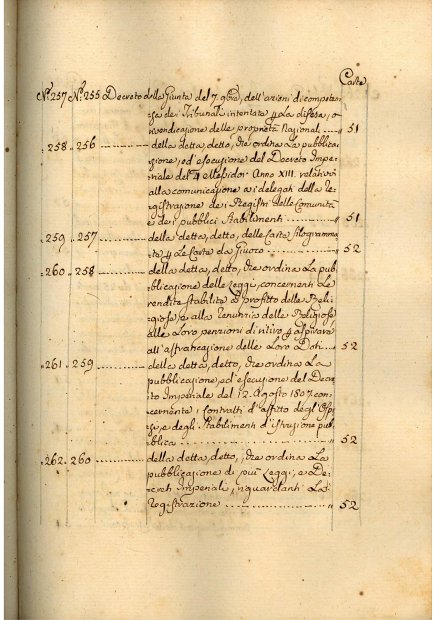 Carte
N.º 257 N.º 255 Decreto della Giunta del 7. 9bre, dell'azioni di competen=
za dei Tribunali intentate p la difesa, o
rivendicazione delle proprietà Nazionali 51
258 256 della detta, detto, che ordina La pubblica=
zione, ed esecuzione del Decreto Impe=
riale del 4 Messidor Anno XIII. relativo
alla comunicazione ai delegati della Re=
gistrazione dei Registri delle Comunità
e dei pubblici Stabilimenti 51
259 257 della detta, detto, delle Carte filogramma=
te p Le Carte da Giuoco 52
260 258 della detta, detto, che ordina La pub=
blicazione delle Leggi, concernenti Le
rendite stabilite a profitto delle Reli=
giose, e alla renunzia delle Religiose
alle Loro penzioni di ritiro p aspirare
all'affrancazione delle Loro Doti 52
261 259 della detta, detto, che ordina La
pubblicazione, ed esecuzione del Decre=
to Imperiale del 12. Agosto 1807. con=
cernente i contratti d'affitto degl'Ospi=
zi, e degli Stabilimenti d'istruzione pub=
blica 52
262 260 della detta, detto, che ordina La
pubblicazione di più Leggi, e De=
creti Imperiali, riguardanti La
Registrazione 52